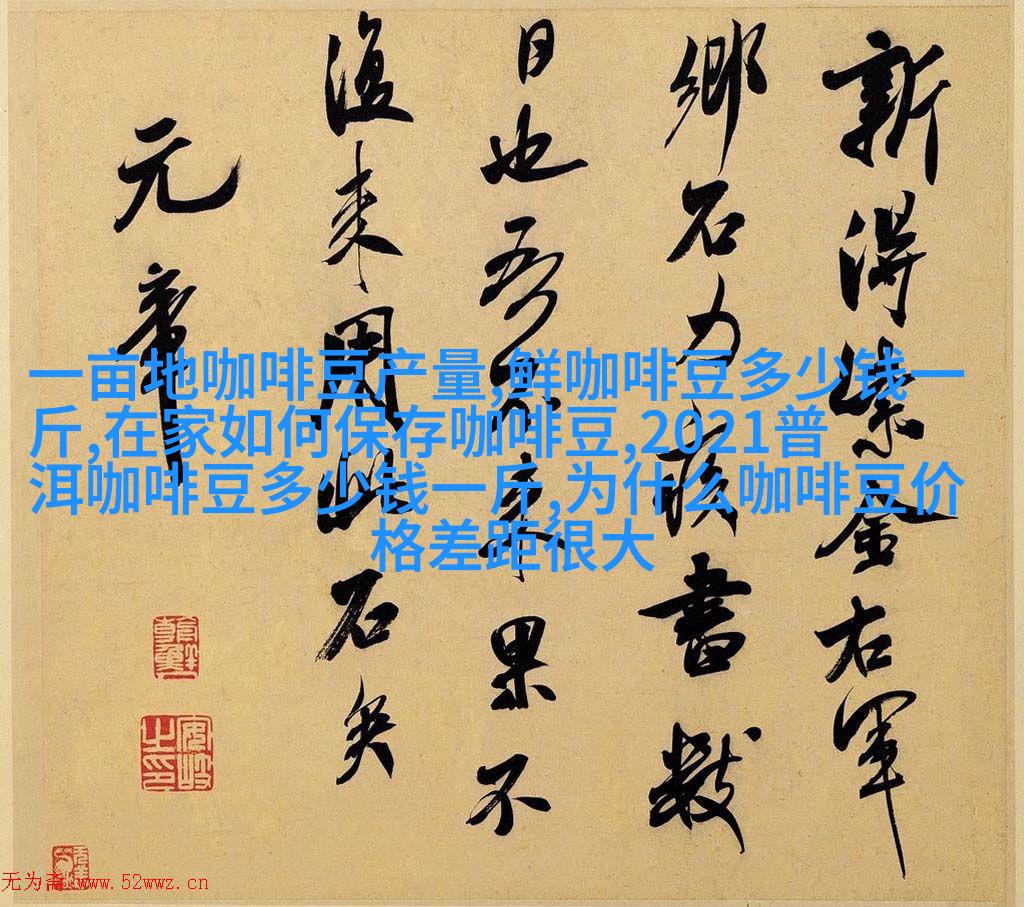 新得紫金右軍
鄉石力疾書數
日也吾不來果不
復來用此石矣
元章
一亩地咖啡豆产量,鲜咖啡豆多少钱一
斤,在家如何保存咖啡豆,2021普
洱咖啡豆多少钱一斤,为什么咖啡豆价
格差距很大
安岐之印
无为斋 www.52wwz.cn